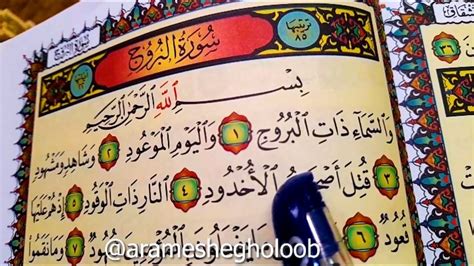 سُورَةُ البُرُوجِ
تَرْتِيبُهَا ٨٥
بِسْمِ اللَّهِ الرَّحْمَٰنِ الرَّحِيمِ
وَالسَّمَاءِ ذَاتِ الْبُرُوجِ ١ وَالْيَوْمِ الْمَوْعُودِ ٢ وَشَاهِدٍ وَمَشْهُودٍ
٣ قُتِلَ أَصْحَابُ الْأُخْدُودِ ٤ النَّارِ ذَاتِ الْوَقُودِ ٥ إِذْ هُمْ عَلَيْهَا
قُعُودٌ ٦ شُهُودٌ ٧ وَمَا نَقَمُوا
@arameshegholoob